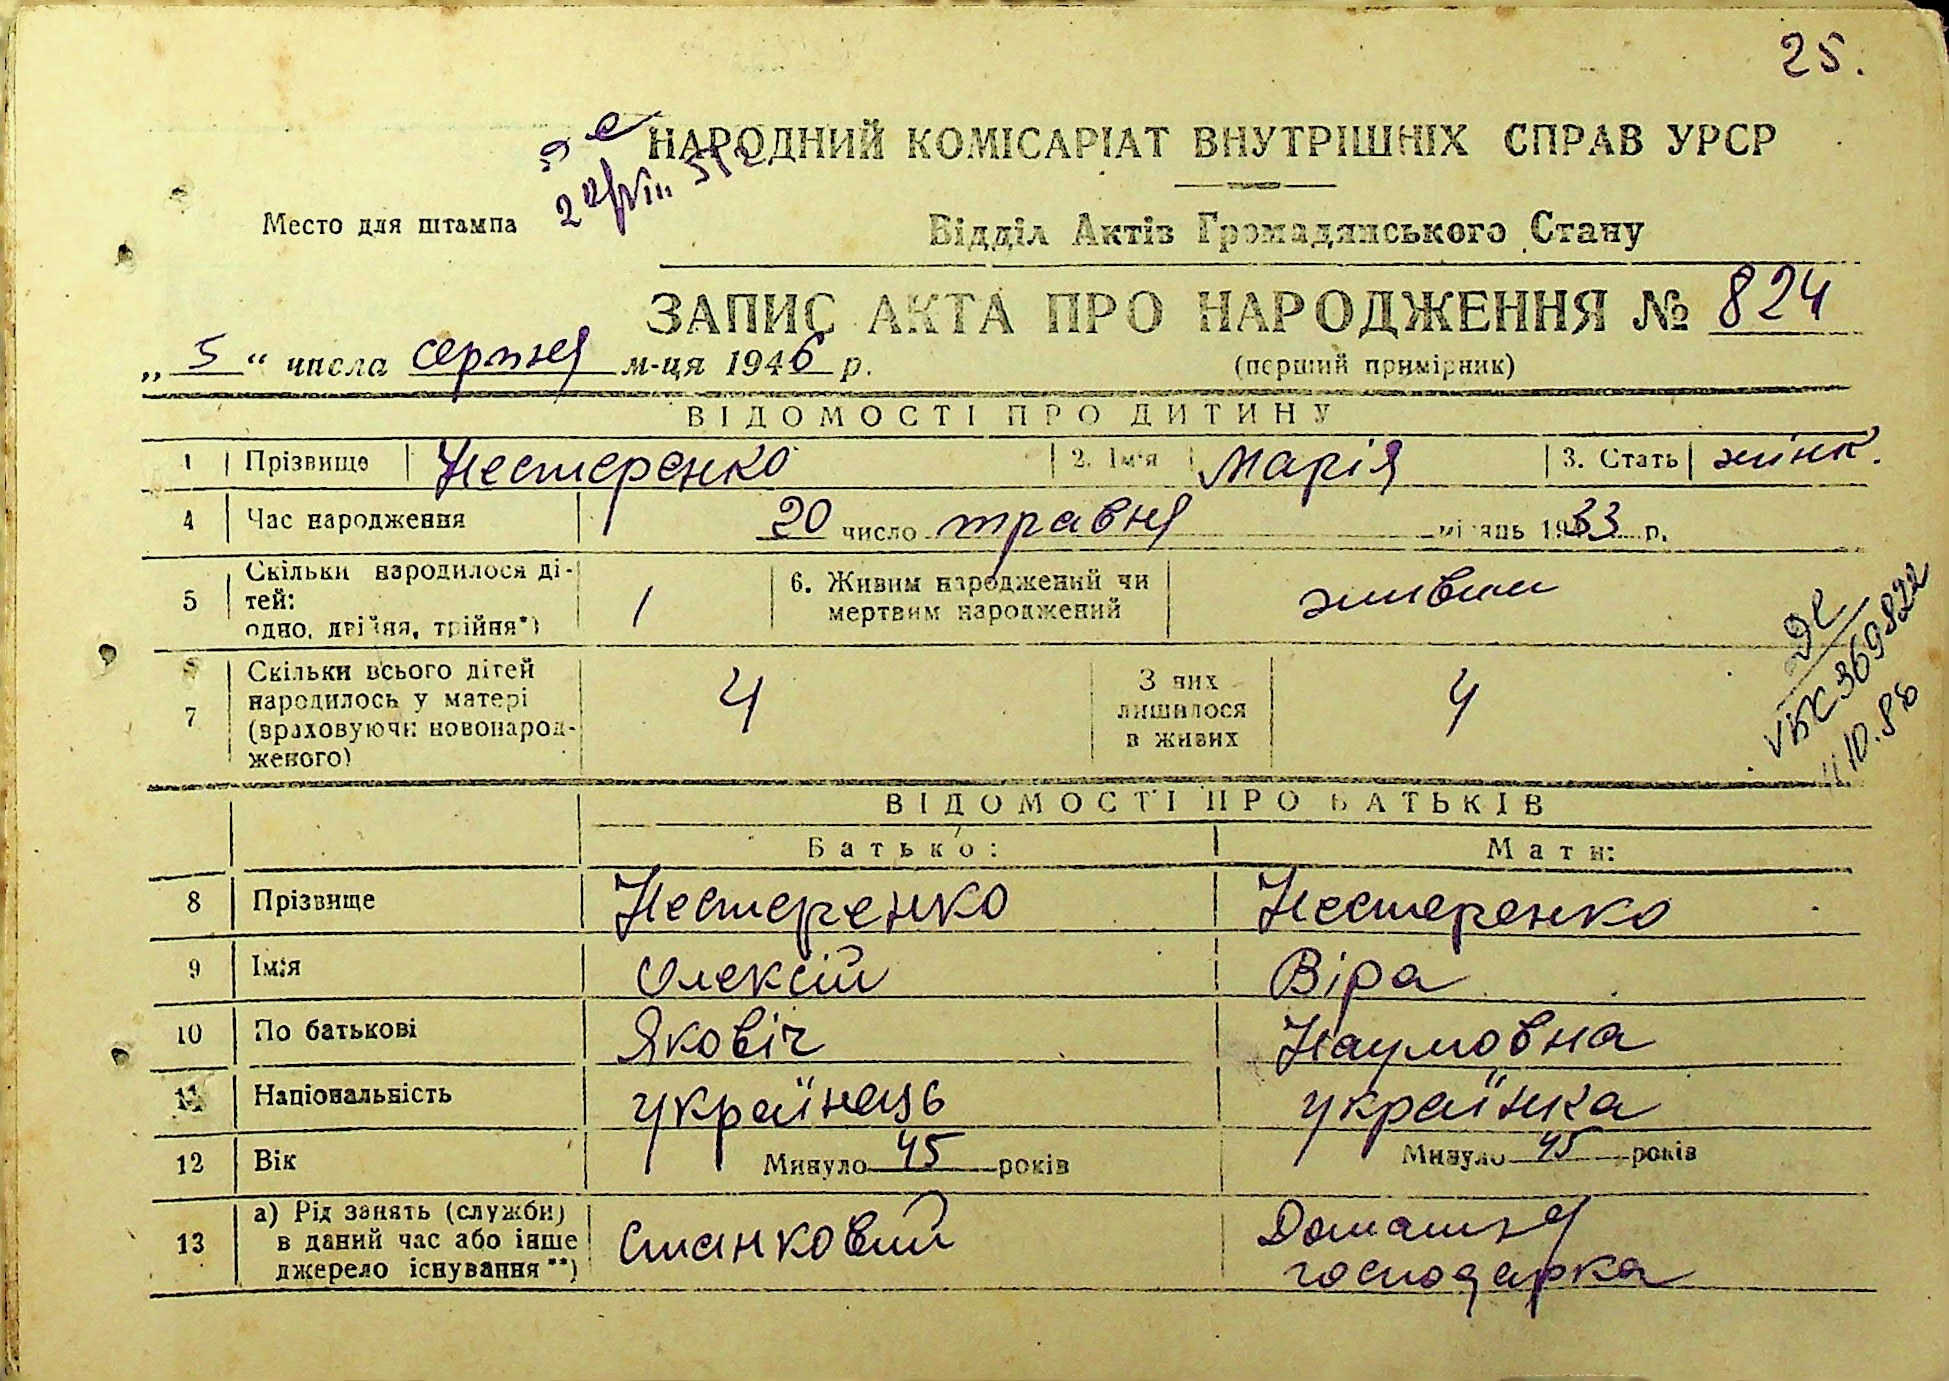 25.
НАРОДНИЙ КОМІСАРІАТ ВНУТРІШНІХ СПРАВ УРСР
Место для штампа
Відділ Актів Громадянського Стану
ЗАПИС АКТА ПРО НАРОДЖЕННЯ № 824
„ 5 “ числа серпня м-ця 1946 р.
(перший примірник)
ВІДОМОСТІ ПРО ДИТИНУ
1 Прізвище Нестеренко 2. Ім'я Марія 3. Стать жінк.
4 Час народження 20 число травня місяць 1933 р.
5 Скільки народилося ді-
тей:
одно, двійня, трійня*)
1
6. Живим народжений чи
мертвим народжений
живим
7 Скільки всього дітей
народилось у матері
(враховуючи новонарод-
женого)
4
З них
лишилося
в живих
4
ДС
VБК 369822
11 10.86
ВІДОМОСТІ ПРО БАТЬКІВ
Батько: Мати:
8 Прізвище Нестеренко Нестеренко
9 Ім'я Олексій Віра
10 По батькові Яковіч Наумовна
11 Національність українець українка
12 Вік Минуло 45 років Минуло 45 років
13 а) Рід занять (служби)
в даний час або інше
джерело існування**)
станковий
Домашня
господарка